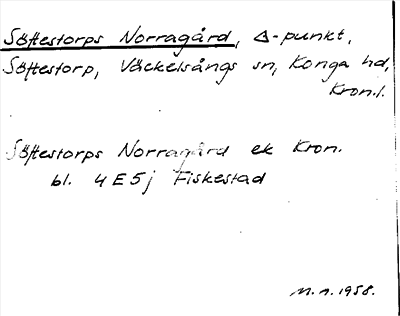 Söftestorps Norragård, Δ-punkt,
Söftestorp, Väckelsångs sn, Konga hd,
Kron.l.
Söftestorps Norragård ek Kron.
bl. 4E5j Fiskestad
M.n. 1958.